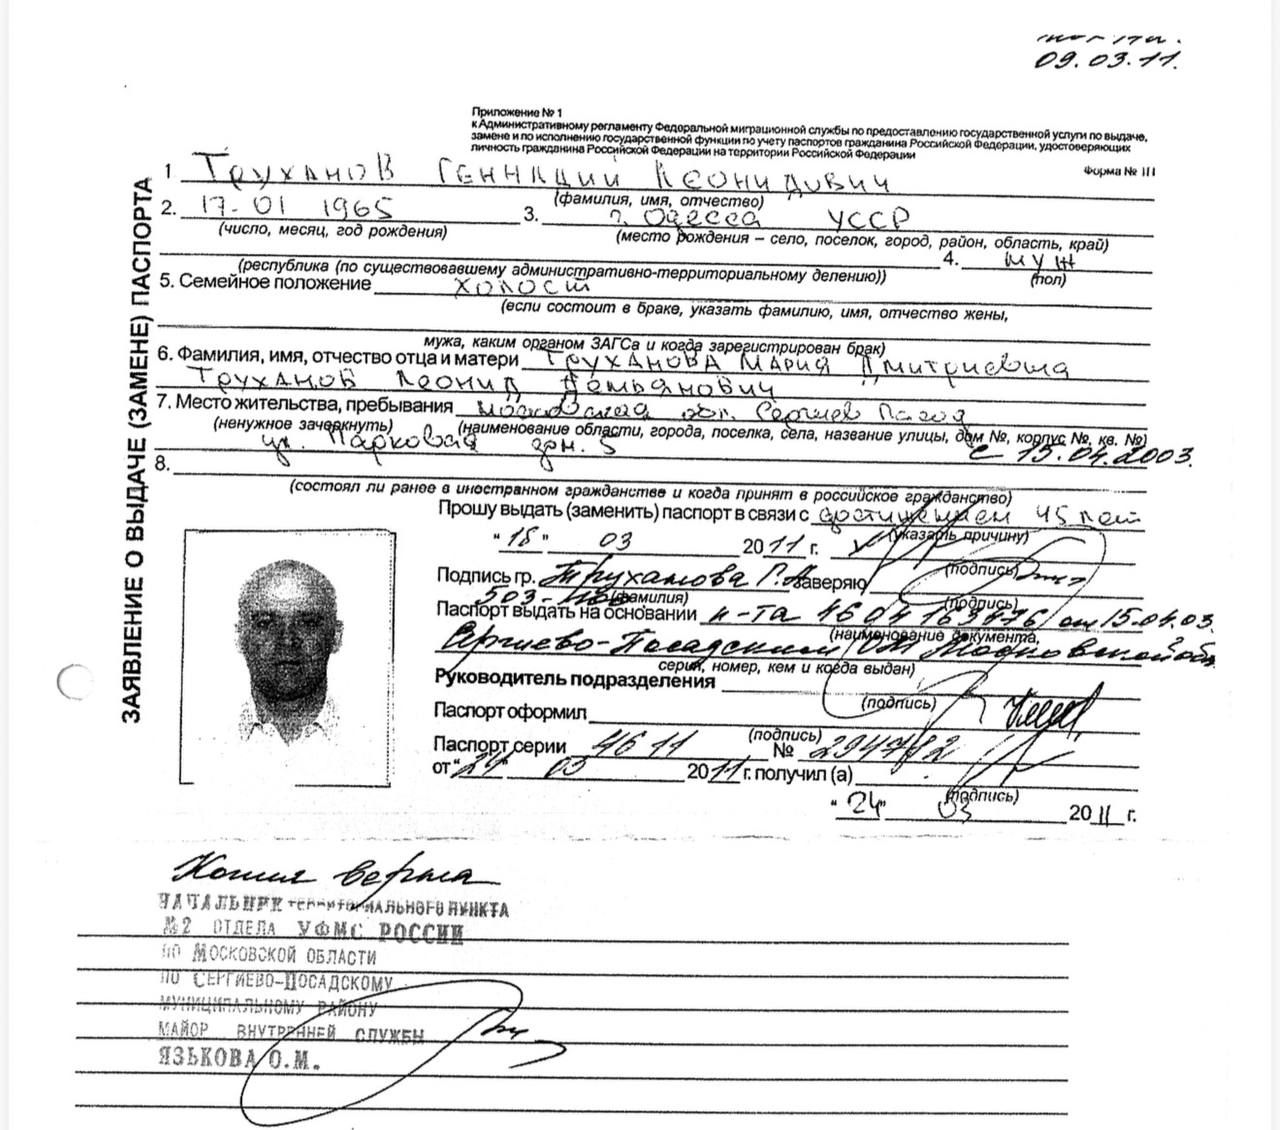 09.03.11.
Приложение № 1
к Административному регламенту Федеральной миграционной службы по предоставлению государственной услуги по выдаче,
замене и по исполнению государственной функции по учету паспортов гражданина Российской Федерации, удостоверяющих
личность гражданина Российской Федерации на территории Российской Федерации
Форма № 1П
ЗАЯВЛЕНИЕ О ВЫДАЧЕ (ЗАМЕНЕ) ПАСПОРТА
1 Труханов Геннадий Леонидович
(фамилия, имя, отчество)
2. 17-01 1965 3. г. Одесса УССР
(число, месяц, год рождения) (место рождения – село, поселок, город, район, область, край)
4. муж
(республика (по существовавшему административно-территориальному делению)) (пол)
5. Семейное положение холост
(если состоит в браке, указать фамилию, имя, отчество жены,
мужа, каким органом ЗАГСа и когда зарегистрирован брак)
6. Фамилия, имя, отчество отца и матери Труханова Мария Дмитриевна
Труханов Леонид Демьянович
7. Место жительства, пребывания Московская обл. Сергиев Посад
(ненужное зачеркнуть) (наименование области, города, поселка, села, название улицы, дом №, корпус №, кв. №)
ул. Парковая дом. 5 с 15.04.2003.
8.
(состоял ли ранее в иностранном гражданстве и когда принят в российское гражданство)
Прошу выдать (заменить) паспорт в связи с достижением 45 лет
(указать причину)
"18" 03 2011 г.
(подпись)
Подпись гр. Труханова Г.Л. заверяю
(фамилия) (подпись)
Паспорт выдать на основании п-та 4604 163476 от 15.04.03.
(наименование документа,
Сергиево-Посадским ОМ Московской обл.
серия, номер, кем и когда выдан)
Руководитель подразделения
(подпись)
Паспорт оформил
(подпись)
Паспорт серии 46 11 № 294782
от "24" 03 2011 г. получил (а)
(подпись)
"24" 03 2011 г.
Копия верна
НАЧАЛЬНИК ТЕРРИТОРИАЛЬНОГО ПУНКТА
№2 ОТДЕЛА УФМС РОССИИ
ПО МОСКОВСКОЙ ОБЛАСТИ
ПО СЕРГИЕВО-ПОСАДСКОМУ
МУНИЦИПАЛЬНОМУ РАЙОНУ
МАЙОР ВНУТРЕННЕЙ СЛУЖБЫ
ЯЗЬКОВА О.М.